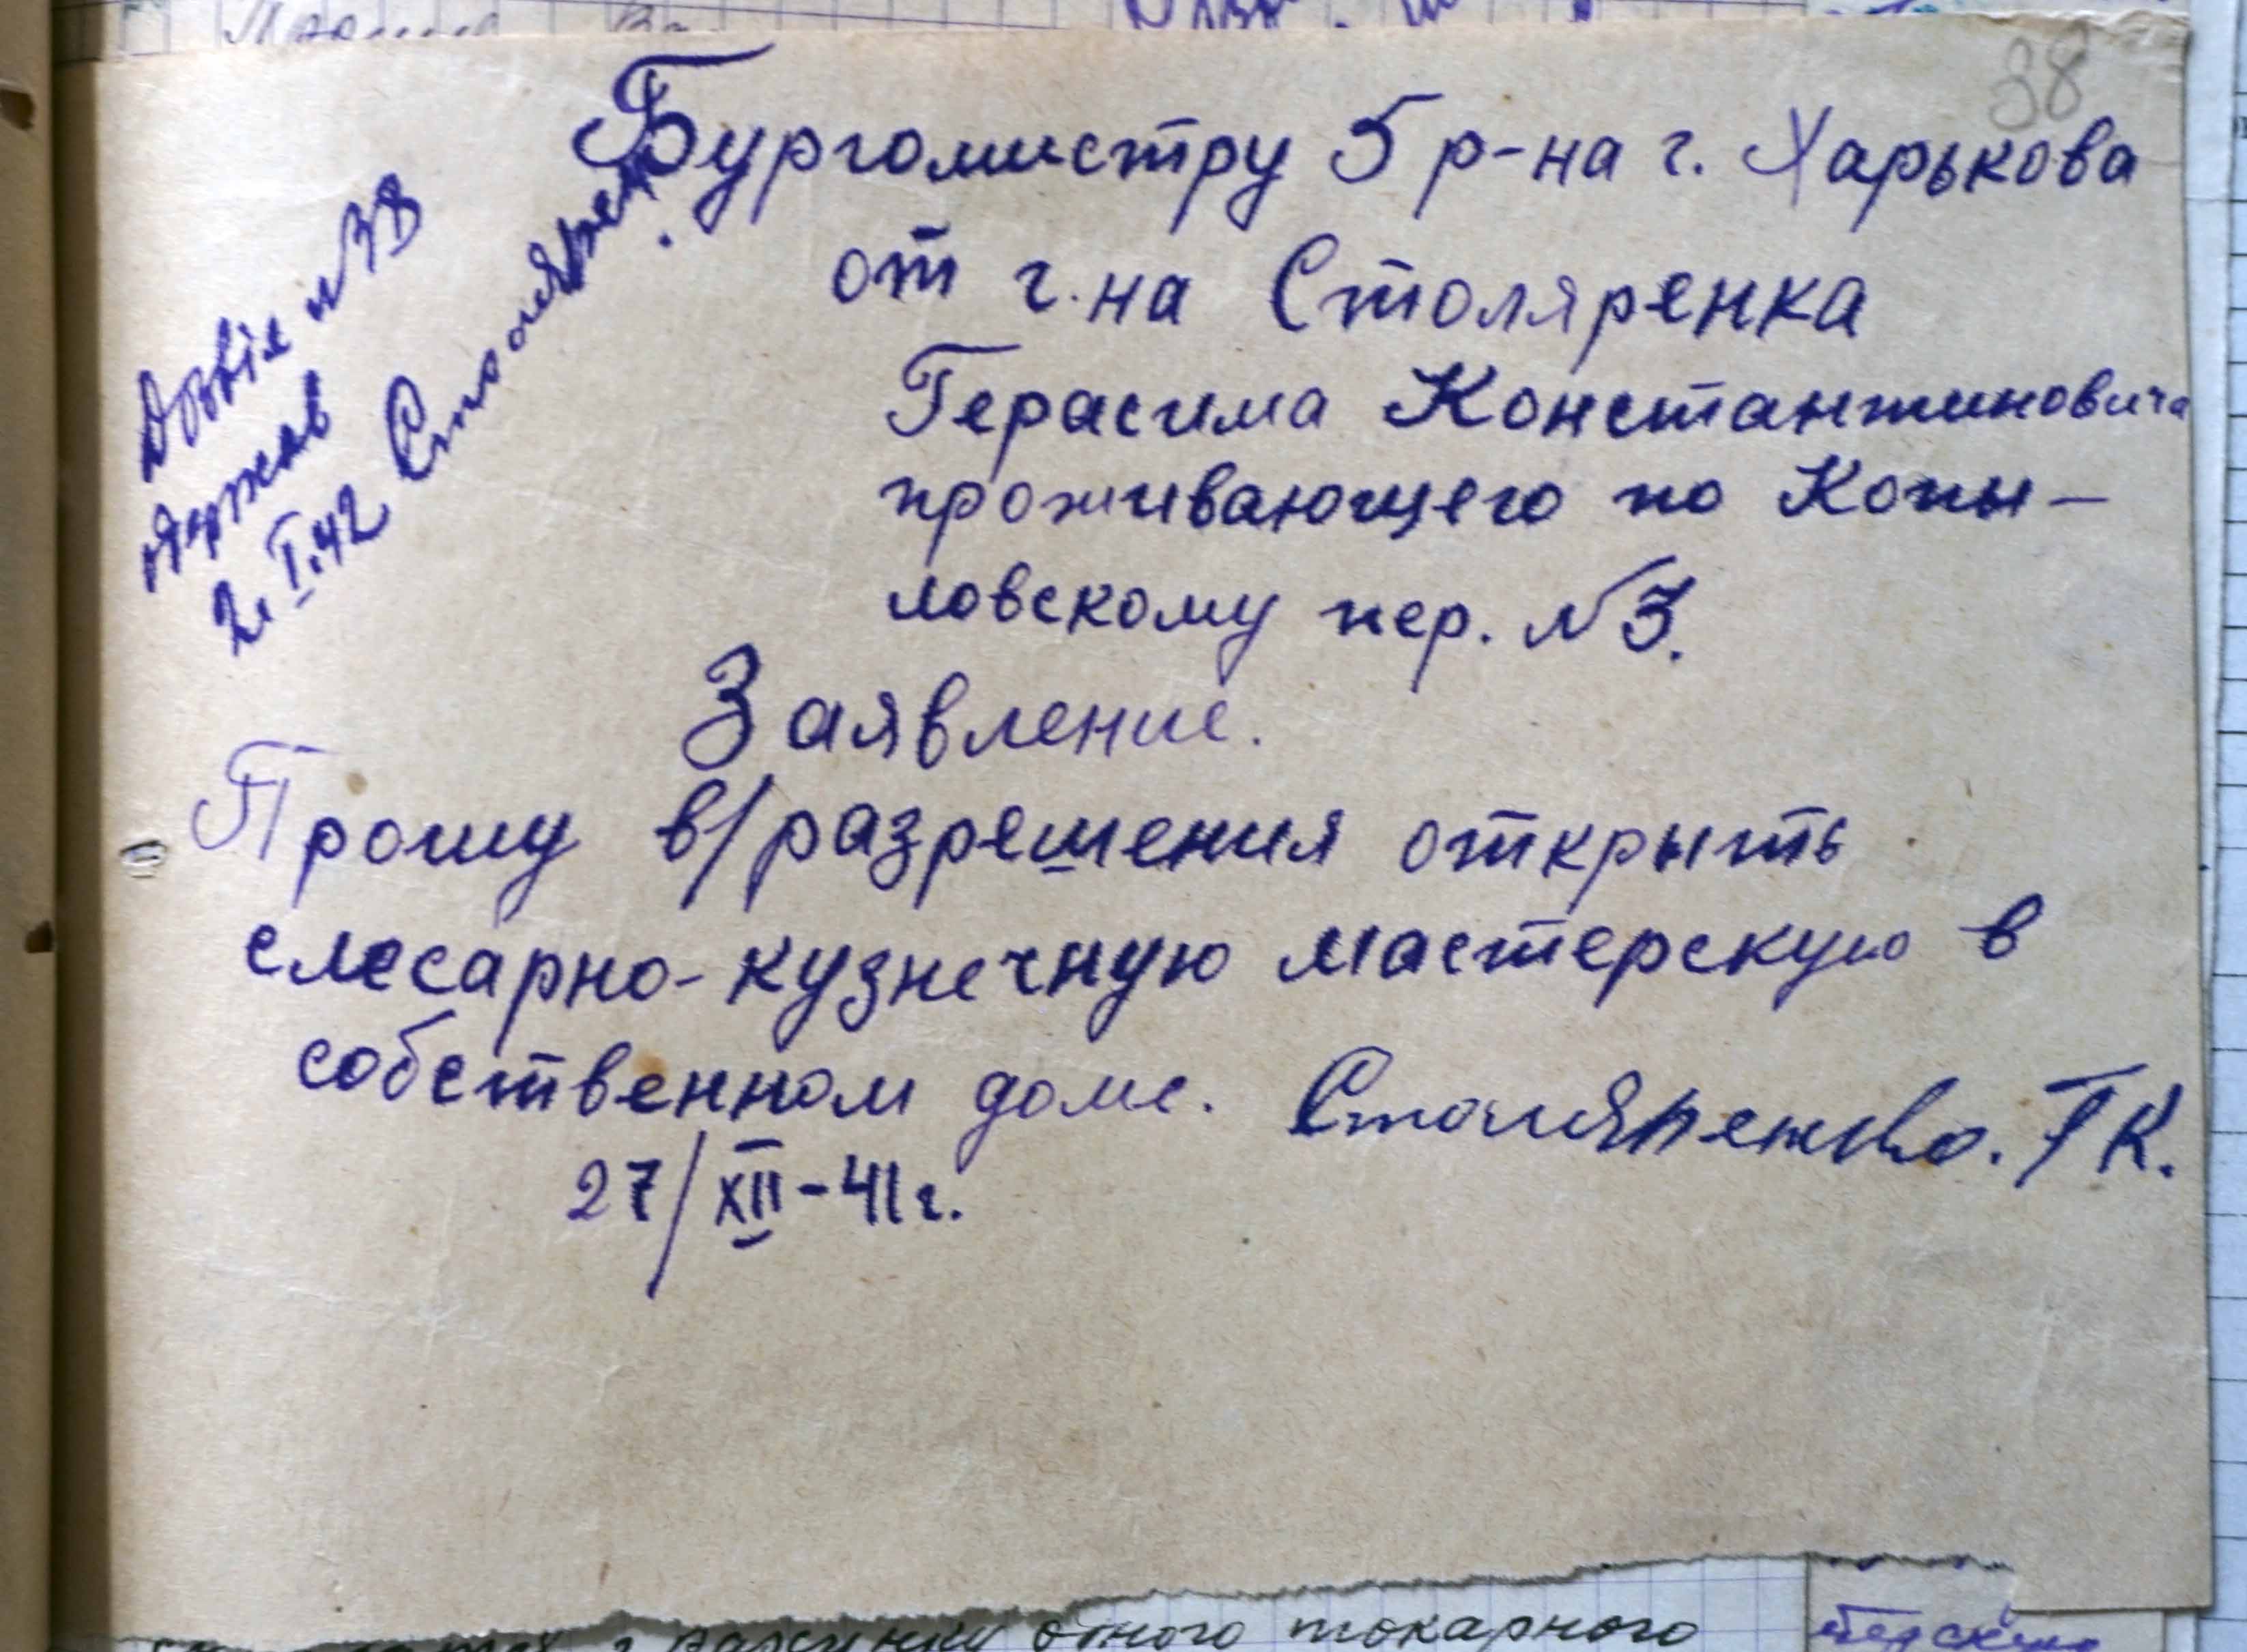 38
Бургомистру 5 р-на г. Харькова
от г-на Столяренка
Герасима Константиновича
проживающего по Копы-
ловскому пер. № 3.
Дозвіл №38
одержав
2.I.42 Столярен
Заявление.
Прошу в/разрешения открыть
слесарно-кузнечную мастерскую в
собственном доме. Столяренко. Г К.
27/XII-41 г.
одного токарного